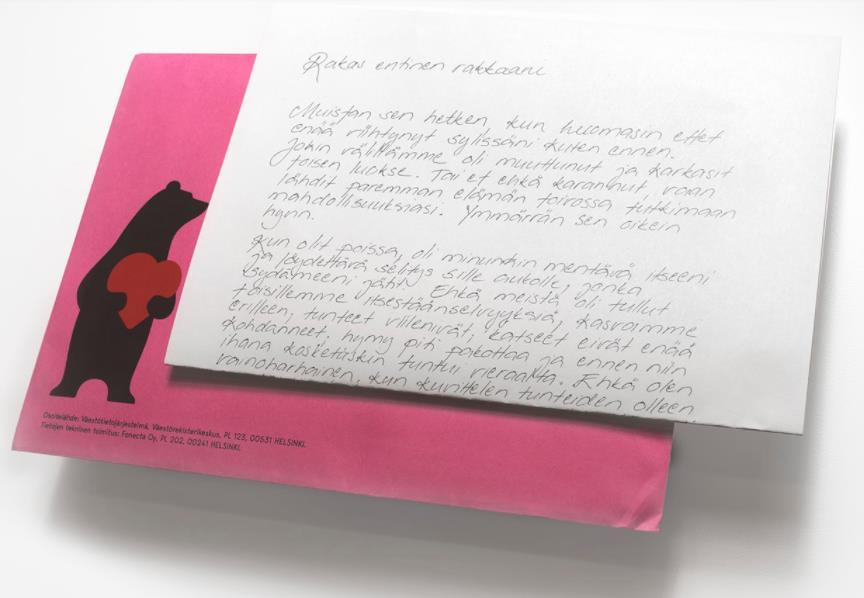 Rakas entinen rakkaani
Muistan sen hetken, kun huomasin ettet
enää viihtynyt sylissäni kuten ennen.
Jokin välillämme oli muuttunut ja karkasit
toisen luokse. Tai et ehkä karannut, vaan
lähdit paremman elämän toivossa tutkimaan
mahdollisuuksiasi. Ymmärrän sen oikein
hyvin.
Kun olit poissa, oli minunkin mentävä itseeni
ja löydettävä selitys sille aukolle, jonka
sydämeeni jätit. Ehkä meistä oli tullut
toisillemme itsestäänselvyyksiä, kasvoimme
erilleen, tunteet viilenivät, katseet eivät enää
kohdanneet, hymy piti pakottaa ja ennen niin
ihana kosketuskin tuntui vieraalta. Ehkä olen
vainoharhainen, kun kuvittelen tunteiden olleen
Osoitelähde: Väestötietojärjestelmä, Väestörekisterikeskus, PL 123, 00531 HELSINKI.
Tietojen tekninen toimitus: Fonecta Oy, PL 202, 00241 HELSINKI.